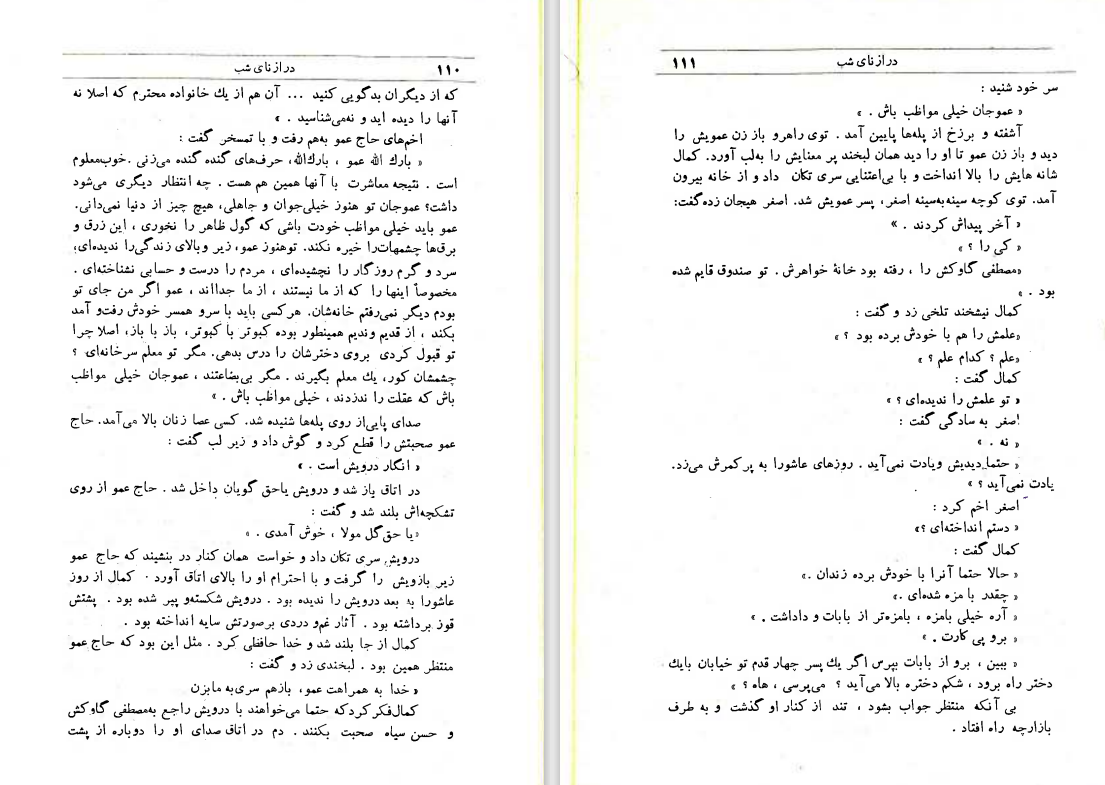 ۱۱۰ درازنای شب
که از دیگران بدگویی کنید ... آن هم از یك خانواده محترم که اصلا نه
آنها را دیده اید و نه‌می‌شناسید . »
اخم‌های حاج عمو به‌هم رفت و با تمسخر گفت :
« بارك الله عمو ، بارك‌الله، حرف‌های گنده گنده می‌زنی .خوب‌معلوم
است . نتیجه معاشرت با آنها همین هم هست . چه انتظار دیگری می‌شود
داشت؟ عموجان تو هنوز خیلی‌جوان و جاهلی، هیچ چیز از دنیا نمی‌دانی.
عمو باید خیلی مواظب خودت باشی که گول ظاهر را نخوری ، این زرق و
برق‌ها چشمهات‌را خیره نکند. توهنوز عمو، زیر وبالای زندگی‌را ندیده‌ای،
سرد و گرم روزگار را نچشیده‌ای ، مردم را درست و حسابی نشناخته‌ای .
مخصوصاً اینها را که از ما نیستند ، از ما جدااند ، عمو اگر من جای تو
بودم دیگر نمی‌رفتم خانه‌شان. هرکسی باید با سرو همسر خودش رفت‌و آمد
بکند ، از قدیم وندیم همینطور بوده کبوتر با کبوتر، باز با باز، اصلا چرا
تو قبول کردی بروی دخترشان را درس بدهی. مگر تو معلم سرخانه‌ای ؟
چشمشان کور، یك معلم بگیرند . مگر بی‌بضاعتند ، عموجان خیلی مواظب
باش که عقلت را ندزدند ، خیلی مواظب باش . »
صدای پایی‌از روی پله‌ها شنیده شد. کسی عصا زنان بالا می‌آمد. حاج
عمو صحبتش را قطع کرد و گوش داد و زیر لب گفت :
« انگار درویش است . »
در اتاق باز شد و درویش یاحق گویان داخل شد . حاج عمو از روی
تشکچه‌اش بلند شد و گفت :
«یا حق‌گل مولا ، خوش آمدی . »
درویش سری تکان داد و خواست همان کنار در بنشیند که حاج عمو
زیر بازویش را گرفت و با احترام او را بالای اتاق آورد . کمال از روز
عاشورا به بعد درویش را ندیده بود . درویش شکسته‌و پیر شده بود . پشتش
قوز برداشته بود . آثار غم‌و دردی برصورتش سایه انداخته بود .
کمال از جا بلند شد و خدا حافظی کرد . مثل این بود که حاج عمو
منتظر همین بود . لبخندی زد و گفت :
« خدا به همراهت عمو، بازهم سری‌به مابزن
کمال‌فکرکردکه حتما می‌خواهند با درویش راجع به‌مصطفی گاوکش
و حسن سیاه صحبت بکنند . دم در اتاق صدای او را دوباره از پشت
۱۱۱ درازنای شب
سر خود شنید :
« عموجان خیلی مواظب باش . »
آشفته و برزخ از پله‌ها پایین آمد . توی راهرو باز زن عمویش را
دید و باز زن عمو تا او را دید همان لبخند پر معنایش را به‌لب آورد. کمال
شانه هایش را بالا انداخت و با بی‌اعتنایی سری تکان داد و از خانه بیرون
آمد. توی کوچه سینه‌به‌سینه اصغر، پسر عمویش شد. اصغر هیجان زده‌گفت:
« آخر پیداش کردند . »
« کی را ؟ »
«مصطفی گاوکش را ، رفته بود خانهٔ خواهرش . تو صندوق قایم شده
بود . »
کمال نیشخند تلخی زد و گفت :
«علمش را هم با خودش برده بود ؟ »
«علم ؟ کدام علم ؟ »
کمال گفت :
« تو علمش را ندیده‌ای ؟ »
اصغر به سادگی گفت :
« نه . »
« حتما دیدیش ویادت نمی‌آید . روزهای عاشورا به پر کمرش می‌زد.
یادت نمی‌آید ؟ »
اصغر اخم کرد :
« دستم انداخته‌ای ؟»
کمال گفت :
« حالا حتما آنرا با خودش برده زندان .»
« چقدر با مزه شده‌ای .»
« آره خیلی بامزه ، بامزه‌تر از بابات و داداشت . »
« برو پی کارت . »
« ببین ، برو از بابات بپرس اگر یك پسر چهار قدم تو خیابان بایك
دختر راه برود ، شکم دختره بالا می‌آید ؟ می‌پرسی ، هاه ؟ »
بی آنکه منتظر جواب بشود ، تند از کنار او گذشت و به طرف
بازارچه راه افتاد .